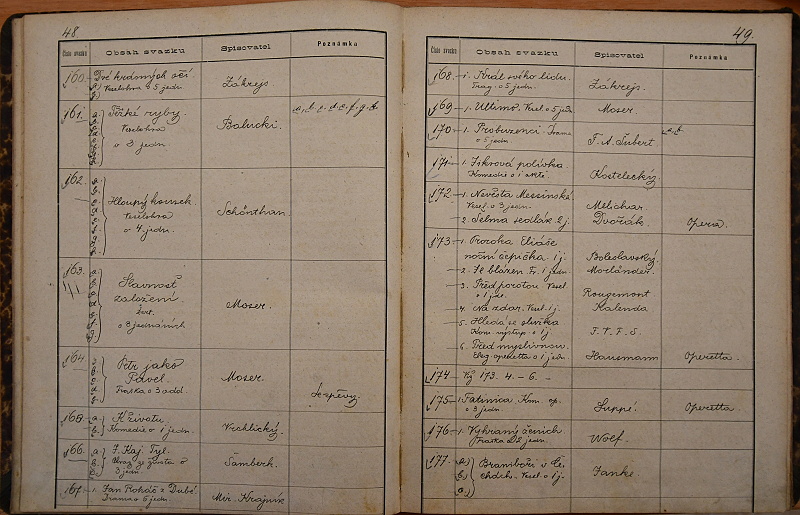 48
Číslo svazku Obsah svazku Spisovatel Poznámka
160. Dvě hedvných očí. Zákrejs.
Veselohra o 5 jedn.
161. Těžké ryby. Balucki. a, b, c, d, e, f, g, h
Veselohra
o 3 jedn.
162. Hloupý kousek Schönthan.
Veselohra
o 4 jedn.
163. Slavnosť Moser.
založení.
o 3 jednáních
164 Petr jako Moser.
Pavel.
Fraška o 3 odd. Se zpěvy.
165. a. K životu. Vrchlický.
b. Komedie o 1 jedn.
166. a. J. Kaj. Tyl. Šamberk.
3 jedn.
167. 1. Jan Roháč z Dubé. Mir. Krajník
Drama o 5 jedn.
49.
Číslo svazku Obsah svazku Spisovatel Poznámka
168. 1. Král svého lidu. Zákrejs.
Trag. o 5 jedn.
169 1. Ultimo. Vesel. o 5 jedn. Moser.
170 1. Probuzenci. Drama F. A. Šubert. a, b.
o 5 jedn.
171 1. Jikrová polívka. Kostelecký.
Komedie o 1 aktě.
172 1. Nevěsta Messinská Melichar.
Vesel. o 3 jedn.
2. Selma sedlák 2 j. Dvořák. Opera.
173 1. Proroka Eliáše
noční čepička. 1 j. Boleslavský.
2. Je blázen. Fr. 1 jedn. Morländer.
3. Před porotou. Vesel
o 1 jedn. Rougemont
4. Na zdar. Vesel. 1 j. Kalenda
5. Hledá se slečinka
Kom. výstup o 1 j. F. V. F. S.
6.
operetta o 1 jedn. Hausmann Operetta.
174 Viz 173. 4. – 6. –
175 1. Fatinica. Kom. op. Suppé. Operetta.
o 3 jedn.
176 1. Vybraný ženich. Wolf.
Fraška o 2 jedn.
177. a) Braniboři v Če- Janke.
b) chách. Vesel. o 1 j.
c)